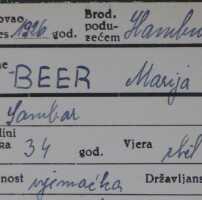 ovao Brod.
es 1926 god. podu-
zećem Hambu
ne
BEER Marija
Sambor
dini
ra 34 god. Vjera
nost njemačka Državljans